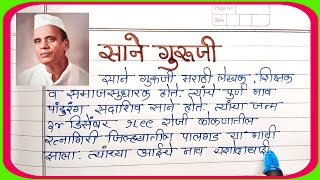 साने गुरूजी
साने गुरूजी मराठी लेखक, शिक्षक
व समाजसुधारक होते. त्यांचे पुर्ण नाव
पांडुरंग सदाशिव साने होते. त्यांचा जन्म
२४ डिसेंबर १८९९ रोजी कोकणातील
रत्नागिरी जिल्ह्यातील पालगड या गावी
झाला. त्यांच्या आईचे नाव यशोदाबाई